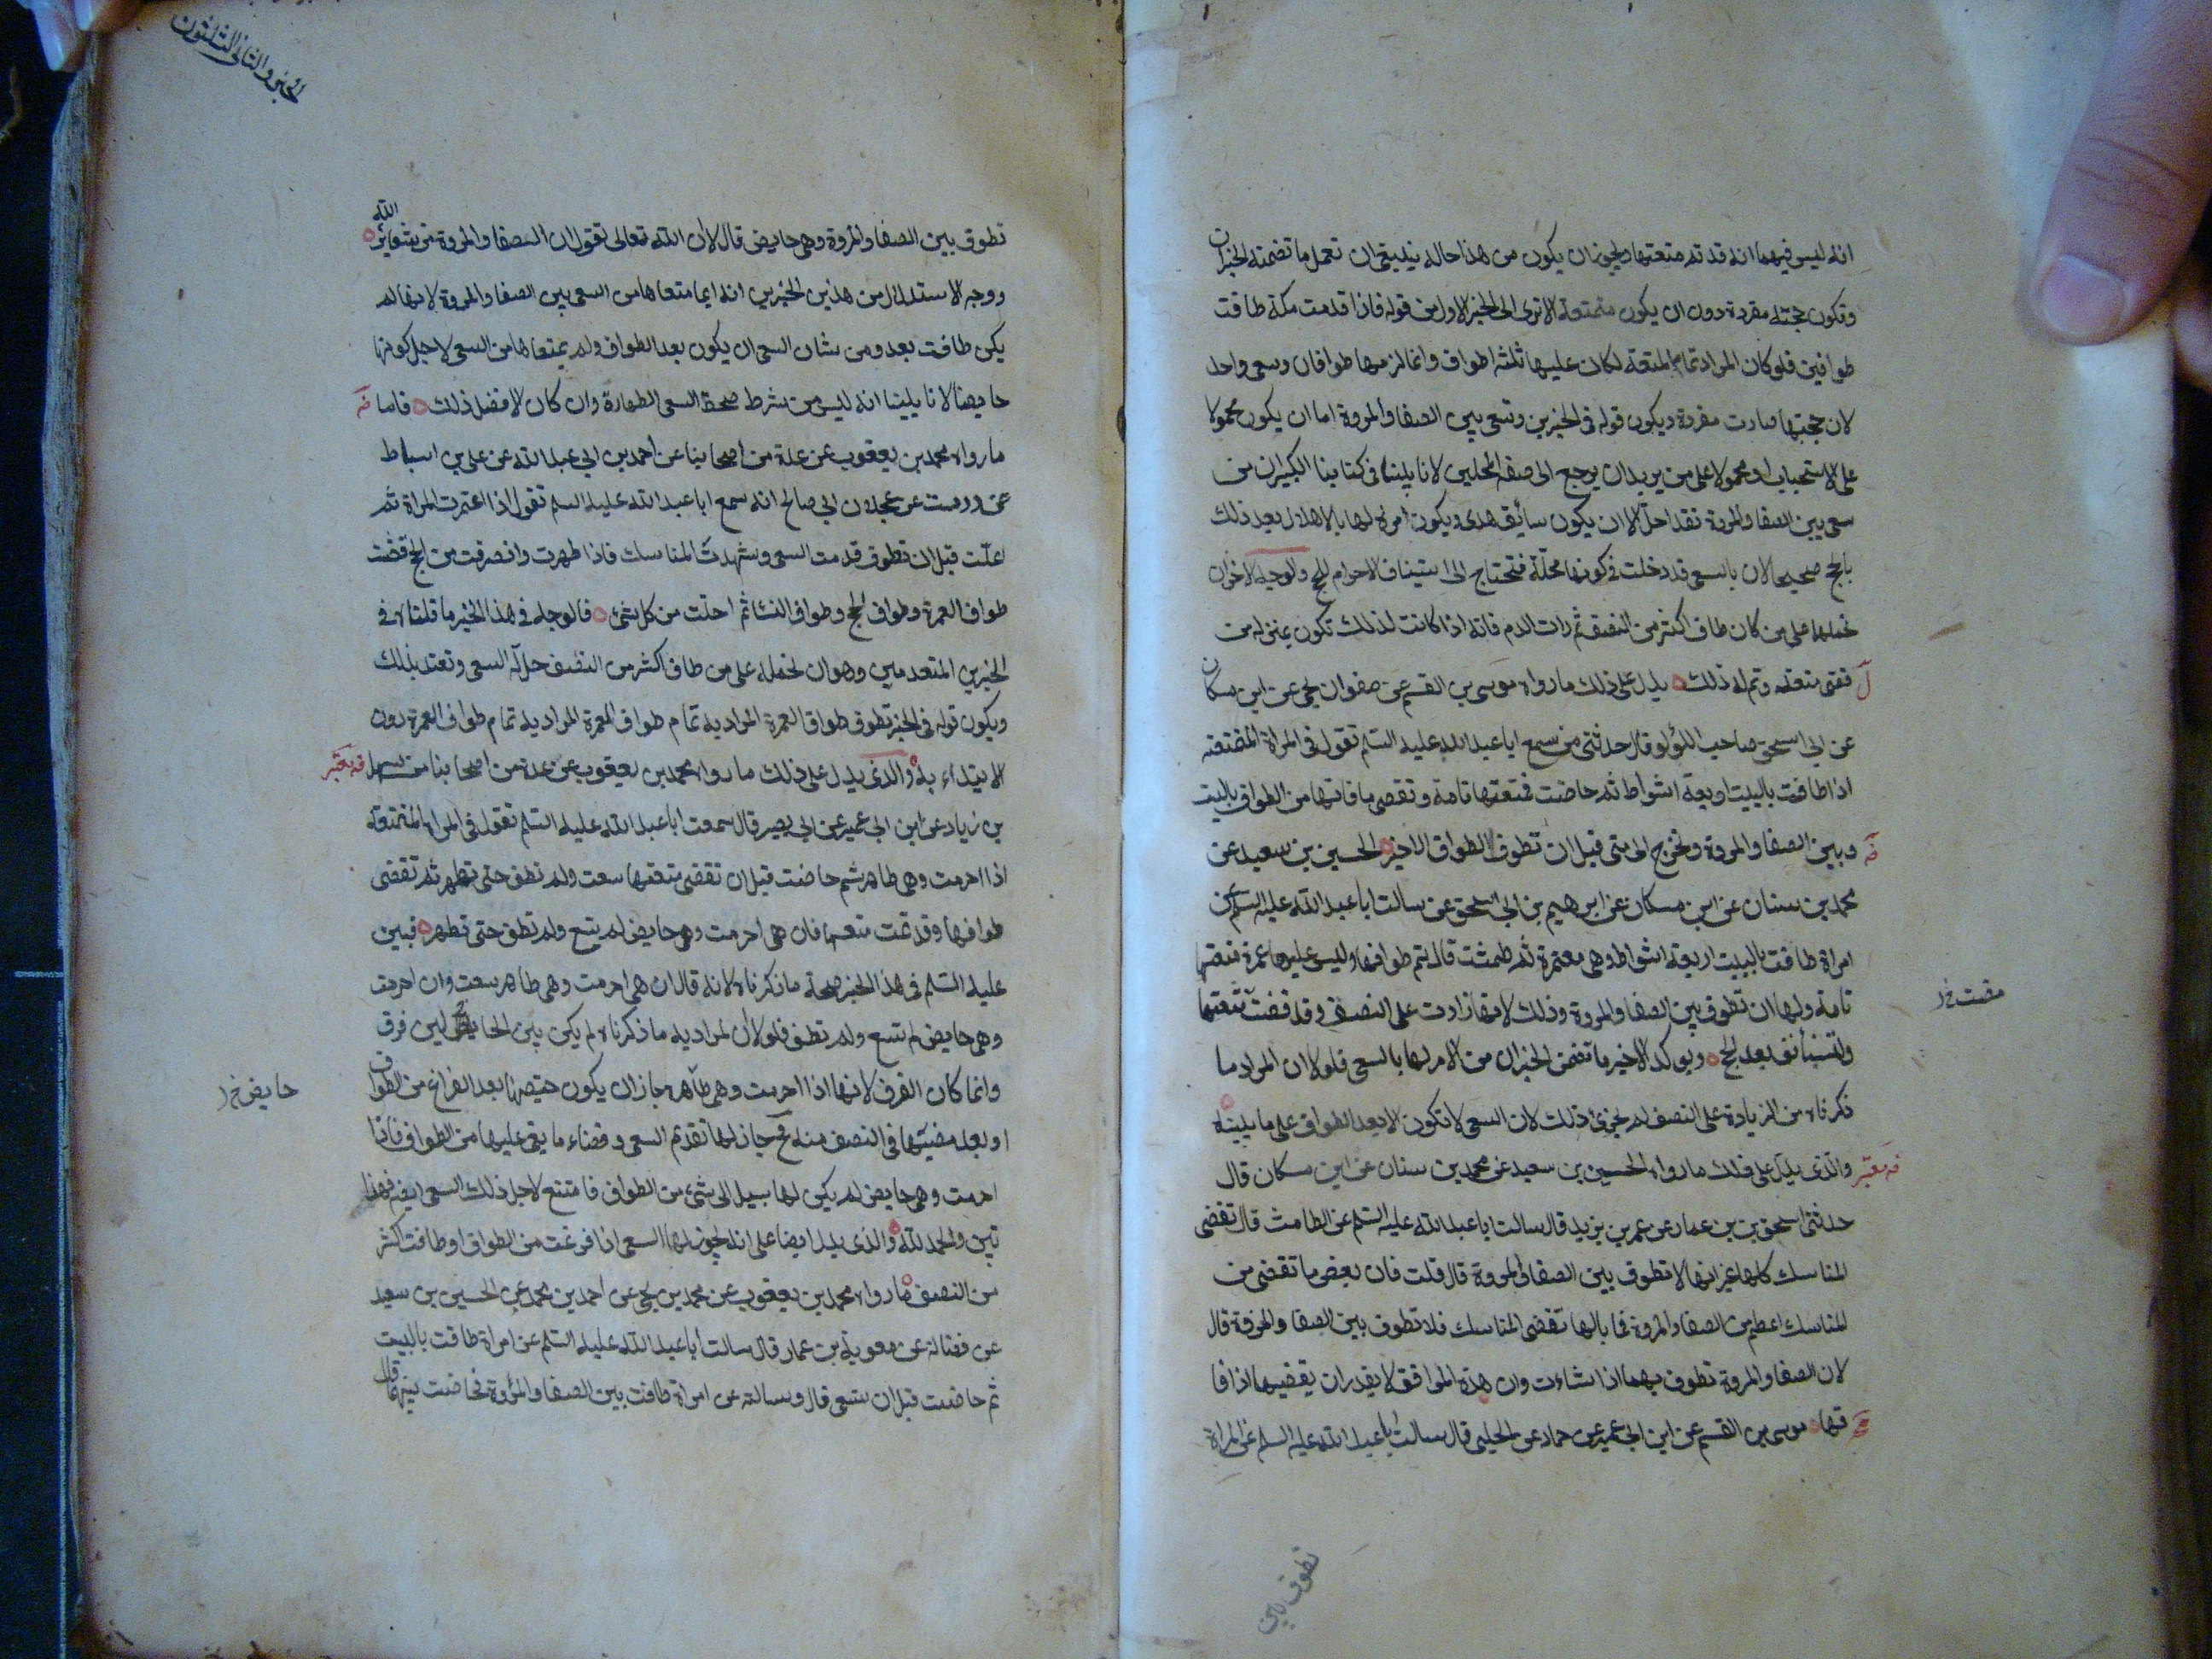 انه ليس فيهما انه قد تم متعتها ويجوز ان يكون من هذا حاله ينبغي ان تعمل ما تضمنه الخبران
وتكون حجته مفردة دون ان يكون متمتعة الا ترى الى الخبر الاول من قوله فاذا قدمت مكة طافت
طوافين فلو كان المراد تمام المتعة لكان عليها ثلثه اطواف وانما لزمها طوافان وسعى واحد
لان حجتها صارت مفردة ويكون قوله في الخبرين وتسعى بين الصفا والمروة اما ان يكون محمولا
على الاستحباب او محمولا على من يريد ان يرجع الى صفة المحلين لانا بينا في كتابنا الكبير ان من
سعى بين الصفا والمروة فقد احل الا ان يكون سائق هدى ويكون امره لها بالاهلال بعد ذلك
بالحج صحيحا لان بالسعى قد دخلت في كونها محلة فتحتاج الى استيناف الاحرام للحج والوجه الاخر ان
نحملهما على من كان طاف اكثر من النصف ثم رات الدم فانه اذا كانت لذلك تكون بمنزله من
قضى متعته وتم له ذلك يدل على ذلك ما رواه موسى بن القسم عن صفوان بن يحيى عن ابن مسكان
عن ابي اسحق صاحب اللؤلؤ قال حدثنى من سمع ابا عبد الله عليه السلم تقول في المراة المتمتعه
اذا طافت بالبيت اربعة اشواط ثم حاضت فمتعتها تامة وتقضى ما فاتها من الطواف بالبيت
وبين الصفا والمروة وتخرج الى منى قبل ان تطوف الطواف الاخير الحسين بن سعيد عن
محمد بن سنان عن ابن مسكان عن ابرهيم بن ابي اسحق عن سالت ابا عبد الله عليه السلم عن
امراة طافت بالبيت اربعة اشواط وهى معتمرة ثم طمثت قال يتم طوافها وليس عليها عمرة متعتها
تامة ولها ان تطوف بين الصفا والمروة وذلك لانها زادت على النصف وقد قضت متعتها
مضت خ ر
ولتستأنف بعد الحج ويوكد الاخير ما تضمن الخبران من الامر لها بالسعى فلولا ان المراد ما
ذكرناه من الزيادة على النصف لم يجز ذلك لان السعى لا تكون الا بعد الطواف على ما بيناه
والذى يدل على ذلك ما رواه الحسين بن سعيد عن محمد بن سنان عن ابن مسكان قال
حدثنى اسحق بن عمار عن عمر بن يزيد قال سالت ابا عبد الله عليه السلم عن الطامث قال تقضى
المناسك كلها غير انها لا تطوف بين الصفا والمروة قال قلت فان بعض ما تقضى من
المناسك اعظم من الصفا والمروة فما بالها تقضى المناسك فلا تطوف بين الصفا والمروة قال
لان الصفا والمروة تطوف بهما اذا شاءت وان هذه المواقف لا يقدر ان يقضيها اذا فا
تتها موسى بن القسم عن ابن ابي عمير عن حماد عن الحلبى قال سالت ابا عبد الله عليه السلم عن المراة
تطوف بين
الجزو الثانى الثلثون
تطوف بين الصفا والمروة وهى حايض قال لا ان الله تعالى تقول ان الصفا والمروة من شعائر الله
ووجه الاستدلال من هذين الخبرين انه ايما منعاها من السعى بين الصفا والمروة لانها لم
يكن طافت بعد ومن شان السعى ان يكون بعد الطواف ولم يمنعاها من السعى لاجل كونها
حايضا لانا بينا انه ليس من شرط صحة السعى الطهارة وان كان الافضل ذلك فاما
ما رواه محمد بن يعقوب عن عدة من اصحابنا عن احمد بن ابي عبد الله عن على بن اسباط
عن درست عن عجلان ابي صالح انه سمع ابا عبد الله عليه السلم تقول اذا اعتمرت المراة ثم
اعتلت قبل ان تطوف قدمت السعى وشهدت المناسك فاذا طهرت وانصرفت من الحج قضت
طواف العمرة وطواف الحج وطواف النسا ثم احلت من كل شئ فالوجه في هذا الخبر ما قلناه في
الخبرين المتقدمين وهو ان نحمله على من طاف اكثر من النصف حل له السعى وتعتد بذلك
ويكون قوله في الخبر تطوف طواف العمرة المراد به تمام طواف العمرة المراد به تمام طواف العمرة دون
الابتداء به والذى يدل على ذلك ما رواه محمد بن يعقوب عن عدة من اصحابنا عن سهل
بن زياد عن ابن ابي عمير عن ابي بصير قال سمعت ابا عبد الله عليه السلم تقول في المراة المتمتعة
اذا احرمت وهى طاهر ثم حاضت قبل ان تقضى متعتها سعت ولم تطف حتى تطهر ثم تقضى
طوافها وقد تمت متعتها فان هى احرمت وهى حايض لم يتسع ولم تطف حتى تطهر فبين
عليه السلم في هذا الخبر صحة ما ذكرناه لانه قال ان هى احرمت وهى طاهر سعت وان احرمت
وهى حايض لم تسع ولم تطف فلولا ان المراد به ما ذكرناه لم يكن بين الحالين فرق
وانما كان الفرق لانها اذا احرمت وهى طاهر جاز ان يكون حيضها بعد الفراغ من الطواف
حايض خ ر
او بعد مضيها في النصف منه فح جاز لها تقديم السعى وقضاء ما بقى عليها من الطواف فاذا
احرمت وهى حايض لم يكن لها سبيل الى شئ من الطواف فامتنع لاجل ذلك السعى ايضا فهذا
بين والحمد لله والذى يدل ايضا على انه يجوز لها السعى اذا فرغت من الطواف او طافت اكثر
من النصف ما رواه محمد بن يعقوب عن محمد بن يحيى عن احمد بن محمد عن الحسين بن سعيد
عن فضالة عن معوية بن عمار قال سالت ابا عبد الله عليه السلم عن امراة طافت بالبيت
ثم حاضت قبل ان تسعى قال وسالته عن امراة طافت بين الصفا والمروة فحاضت بينهما قال